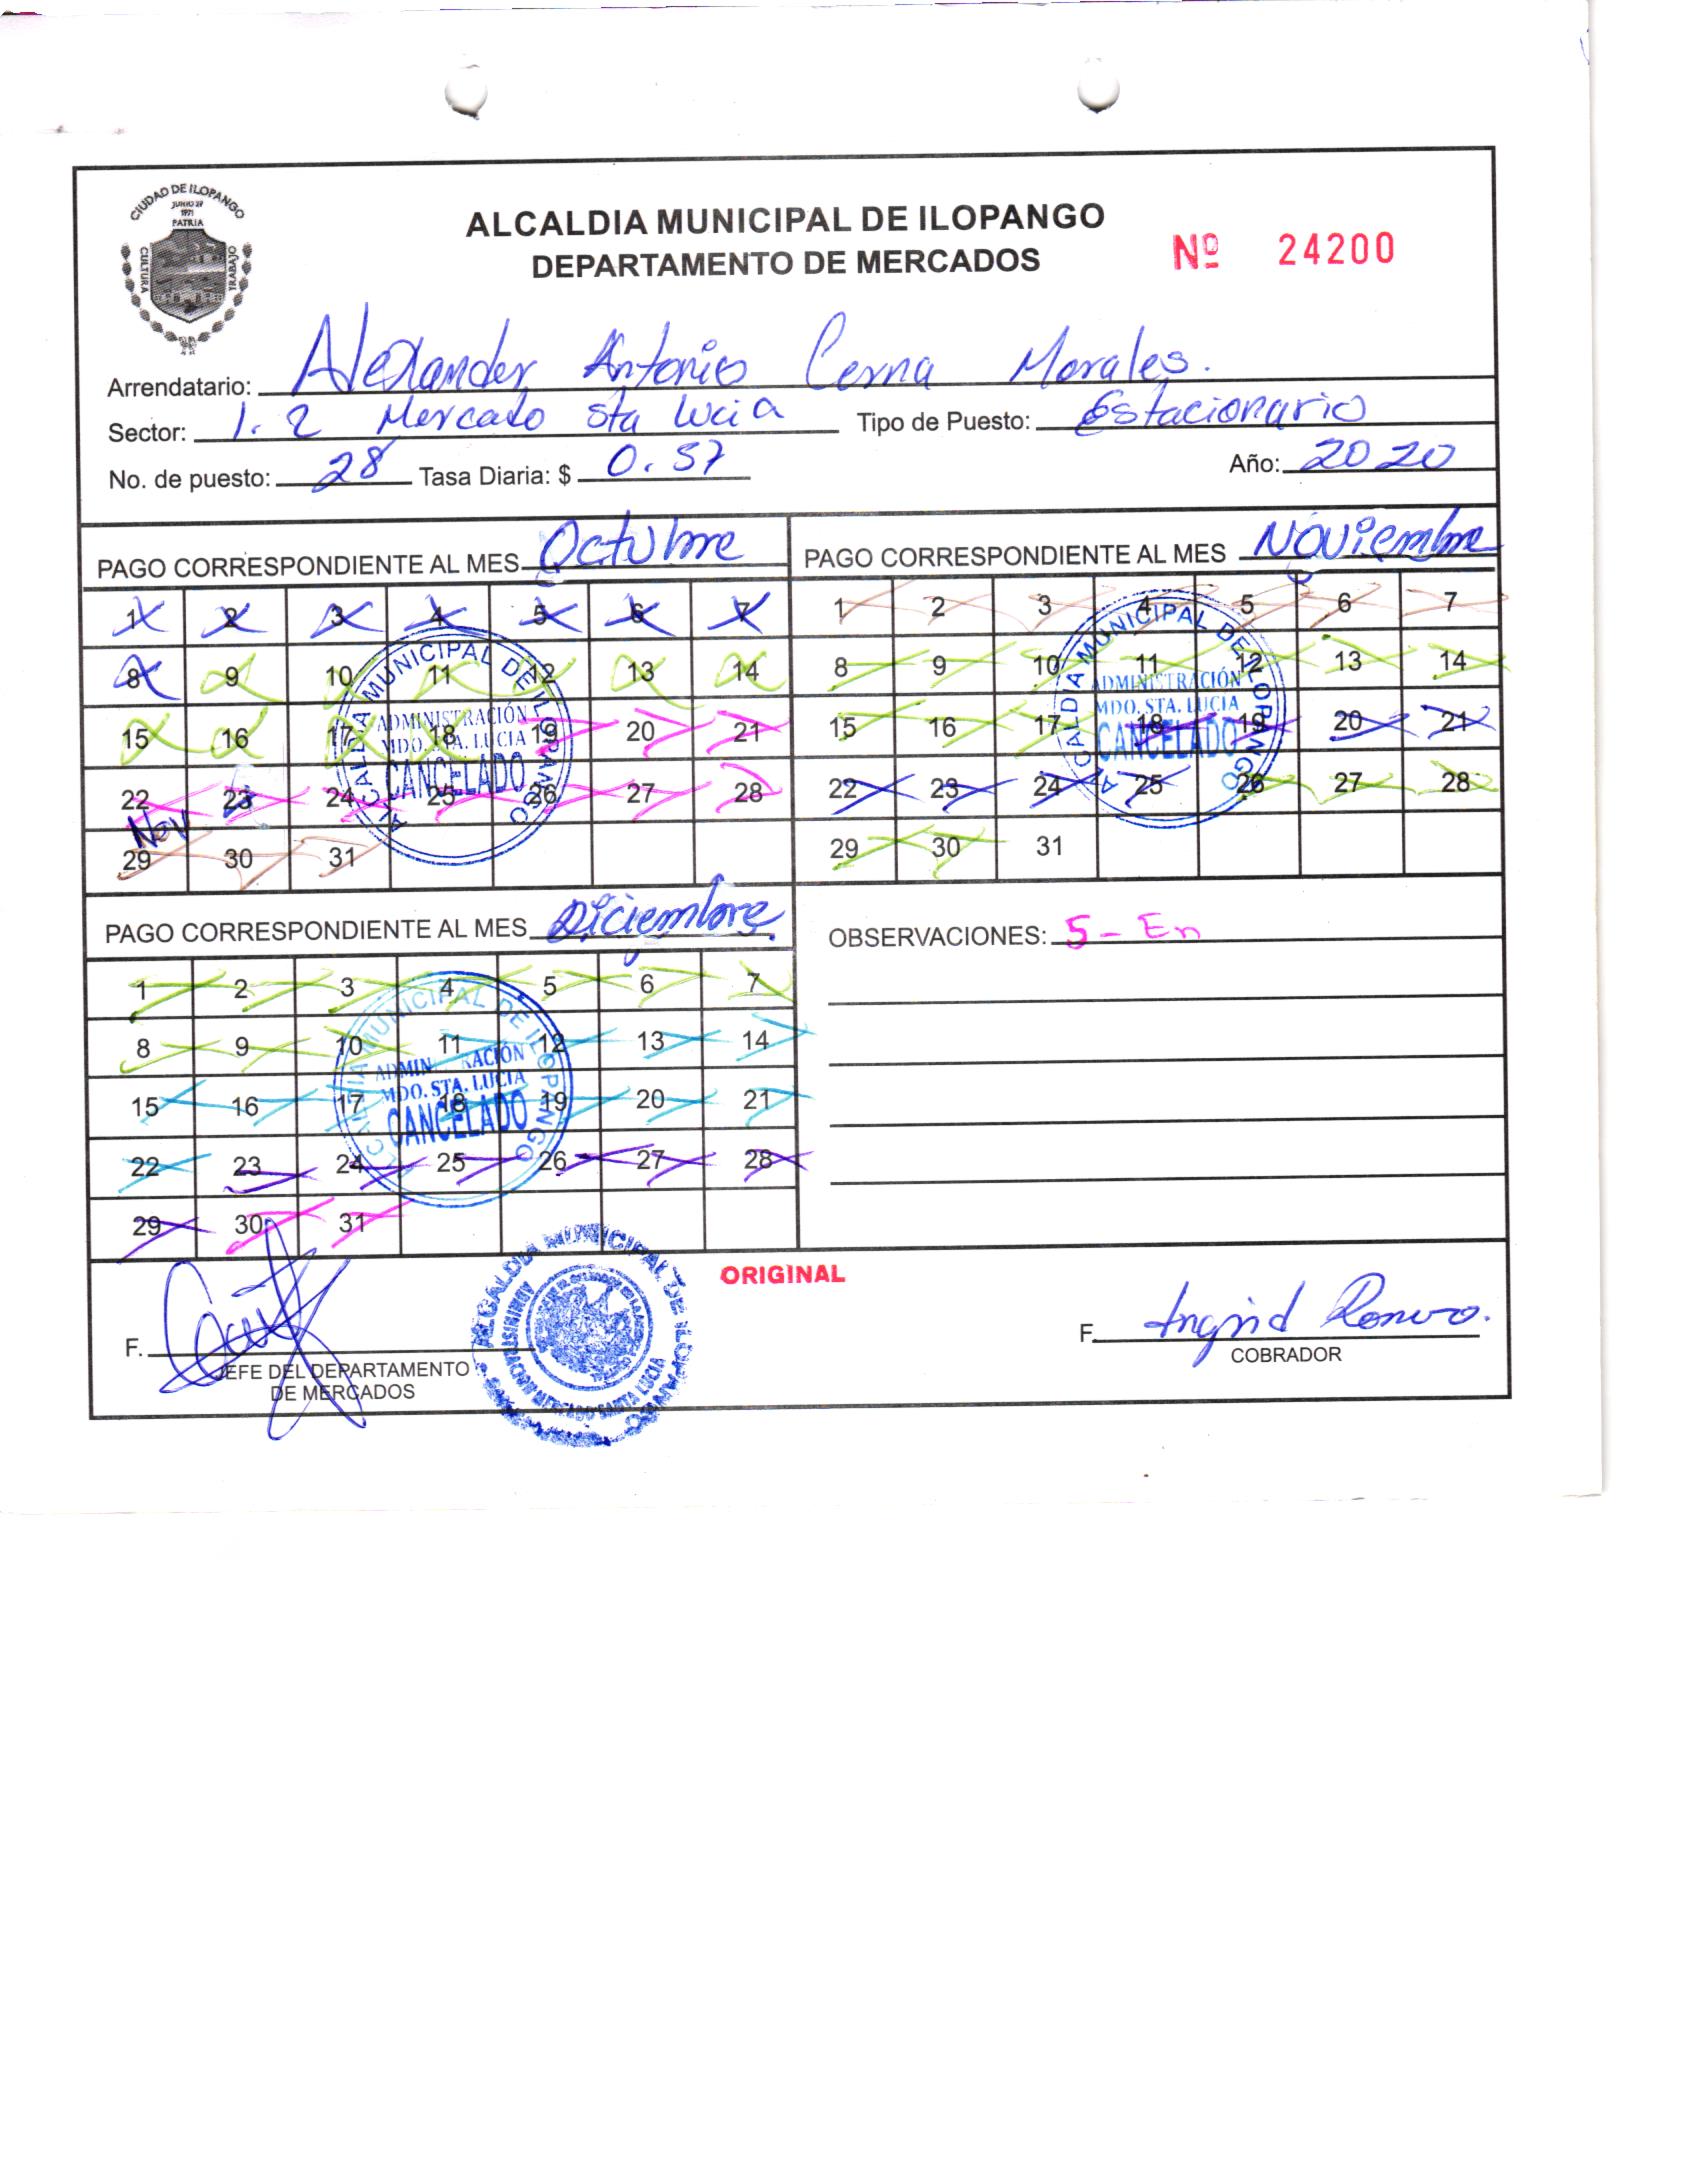 CIUDAD DE ILOPANGO
JUNIO 29
1971
PATRIA
CULTURA
TRABAJO
ALCALDIA MUNICIPAL DE ILOPANGO
DEPARTAMENTO DE MERCADOS
Nº 24200
Arrendatario: Alexander Antonio Cerna Morales.
Sector: 1.2 Mercado Sta Lucia Tipo de Puesto: Estacionario
No. de puesto: 28 Tasa Diaria: $ 0.57 Año: 2020
PAGO CORRESPONDIENTE AL MES Octubre
1 2 3 4 5 6 7
8 9 10 11 12 13 14
15 16 17 18 19 20 21
22 23 24 25 26 27 28
Nov
29 30 31
ALCALDIA MUNICIPAL DE ILOPANGO
ADMINISTRACIÓN
MDO. STA. LUCIA
CANCELADO
PAGO CORRESPONDIENTE AL MES Noviembre
1 2 3 4 5 6 7
8 9 10 11 12 13 14
15 16 17 18 19 20 21
22 23 24 25 26 27 28
29 30 31
ALCALDIA MUNICIPAL DE ILOPANGO
ADMINISTRACIÓN
MDO. STA. LUCIA
CANCELADO
PAGO CORRESPONDIENTE AL MES Diciembre
1 2 3 4 5 6 7
8 9 10 11 12 13 14
15 16 17 18 19 20 21
22 23 24 25 26 27 28
29 30 31
ALCALDIA MUNICIPAL DE ILOPANGO
ADMIN RACIÓN
MDO. STA. LUCIA
CANCELADO
OBSERVACIONES: 5 - En
F.
JEFE DEL DEPARTAMENTO
DE MERCADOS
ALCALDIA MUNICIPAL DE ILOPANGO
ADMINISTRACION MERCADO SANTA LUCIA
ORIGINAL
F. Ingrid Romero.
COBRADOR